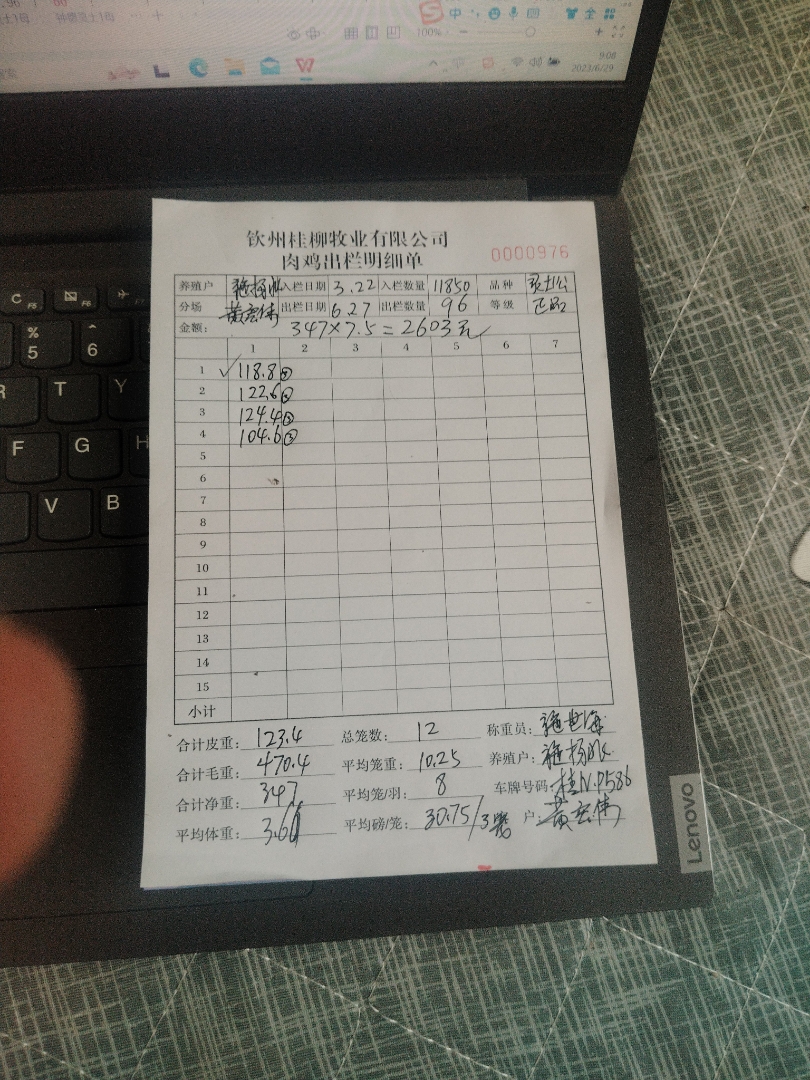 中
全
100%
9:08
2023/6/29
钦州桂柳牧业有限公司
肉鸡出栏明细单
0000976
养殖户 入栏日期 3.22 入栏数量 11850 品种
分场 黄宏伟 出栏日期 6.27 出栏数量 96 等级 正品
金额: 347×7.5=2603元
1 2 3 4 5 6 7
1 ✓118.8③
2 122.6③
3 124.4③
4 104.6③
5
6
7
8
9
10
11
12
13
14
15
小计
合计皮重: 123.4 总笼数: 12 称重员:
合计毛重: 470.4 平均笼重: 10.25 养殖户:
合计净重: 347 平均笼/羽: 8 车牌号码: 桂N.P586
平均体重: 3.61 平均磅/笼: 30.75/3 户: 黄宏伟
C F5 F6 F7
% 5 ^ 6
R T Y
F G H
V B
Lenovo